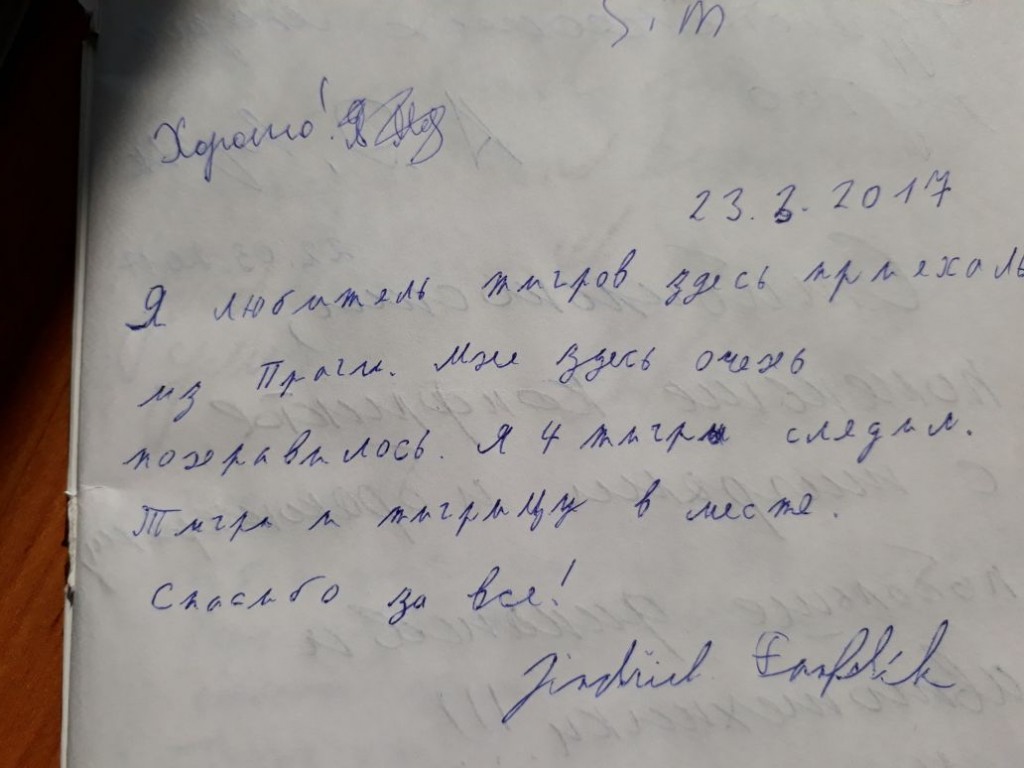 Хорошо!
23.3.2017
Я любитель тигров здесь приехаль
из Праги. Мне здесь очень
понравилось. Я 4 тигры следил.
Тигра и тигрицу в месте.
Спасибо за все!
Jindřich